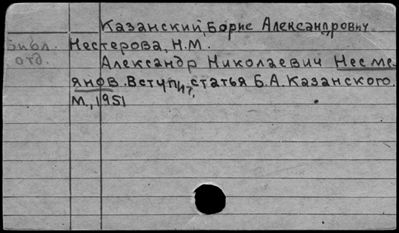 Казанский, Борис Александрович
Библ. Нестерова, Н.М.
отд. Александр Николаевич Несме
янов. Вступит. статья Б.А. Казанского.
М., 1951